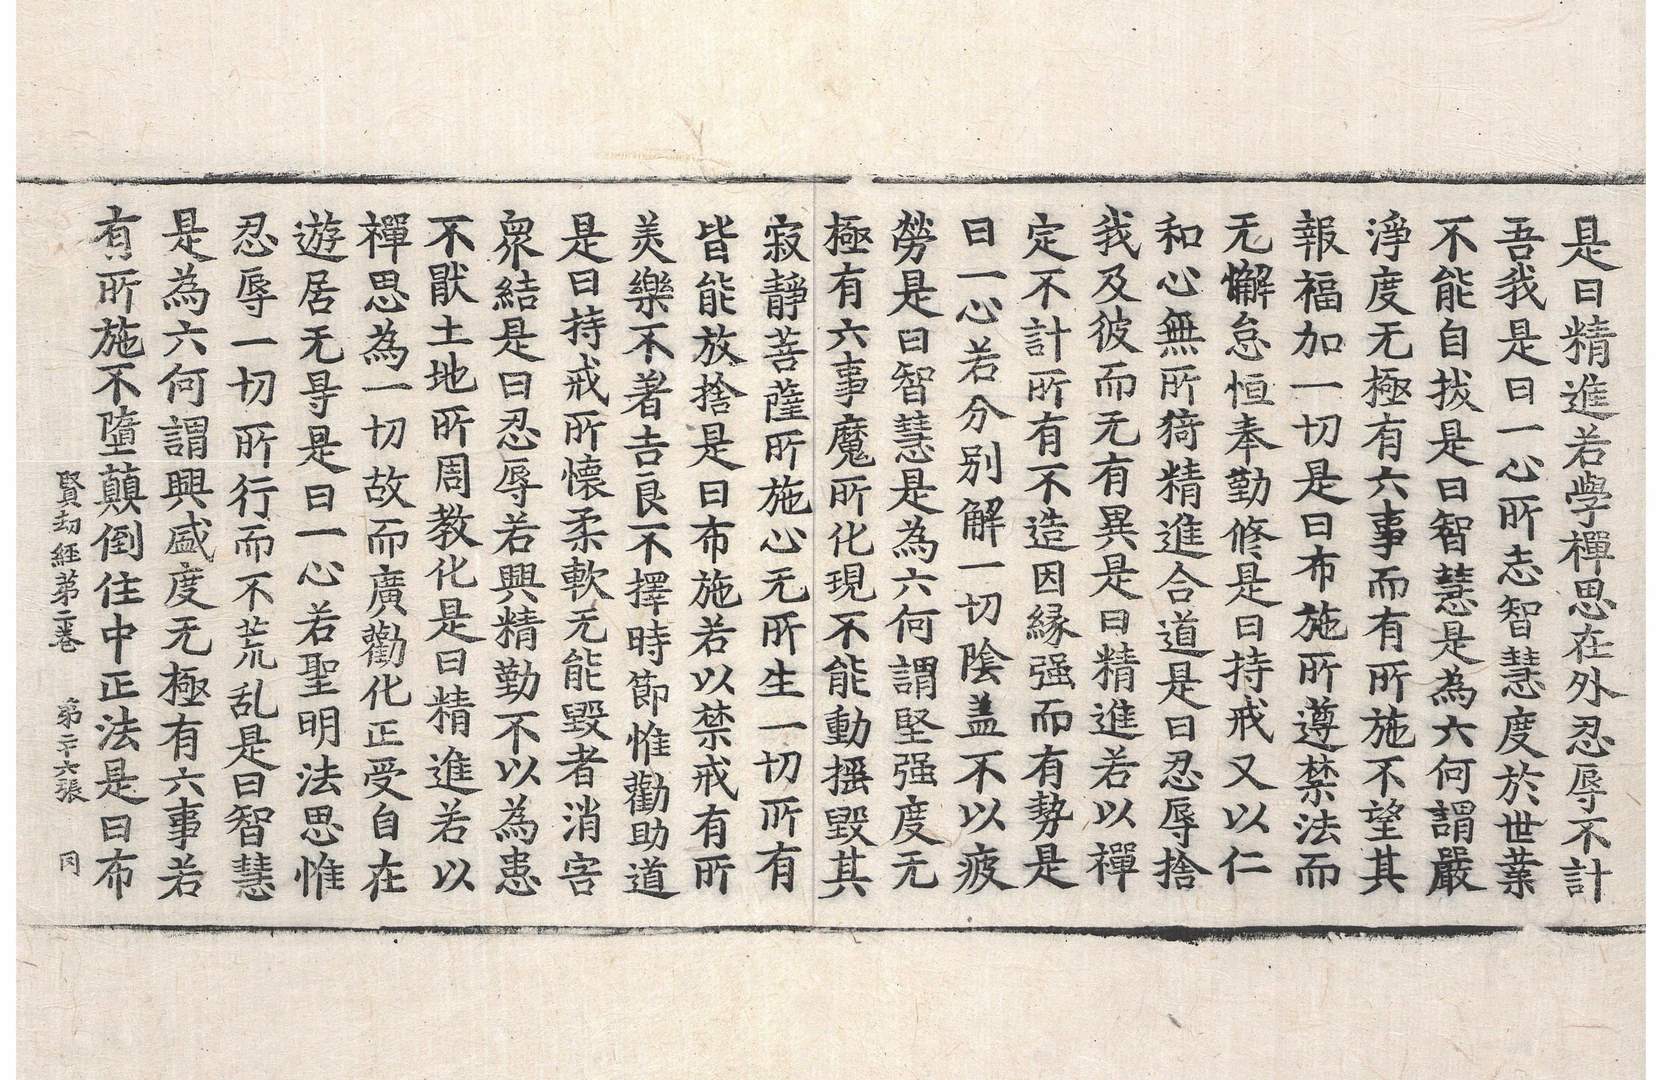 是曰精進若學禪思在外忍辱不計
吾我是曰一心所志智慧度於世業
不能自拔是曰智慧是為六何謂嚴
淨度无極有六事而有所施不望其
報福加一切是曰布施所遵禁法而
无懈怠恒奉勤修是曰持戒又以仁
和心無所猗精進合道是曰忍辱捨
我及彼而无有異是曰精進若以禪
定不計所有不造因縁强而有勢是
曰一心若分別解一切陰蓋不以疲
勞是曰智慧是為六何謂堅强度无
極有六事魔所化現不能動揺毀其
寂靜菩薩所施心无所生一切所有
皆能放捨是曰布施若以禁戒有所
美樂不著吉良不擇時節惟勸助道
是曰持戒所懷柔軟无能毀者消害
衆結是曰忍辱若興精勤不以為患
不猒土地所周教化是曰精進若以
禪思為一切故而廣勸化正受自在
遊居无㝵是曰一心若聖明法思惟
忍辱一切所行而不荒乱是曰智慧
是為六何謂興盛度无極有六事若
有所施不墮顛倒住中正法是曰布
賢劫經第二卷 第二十六張 同